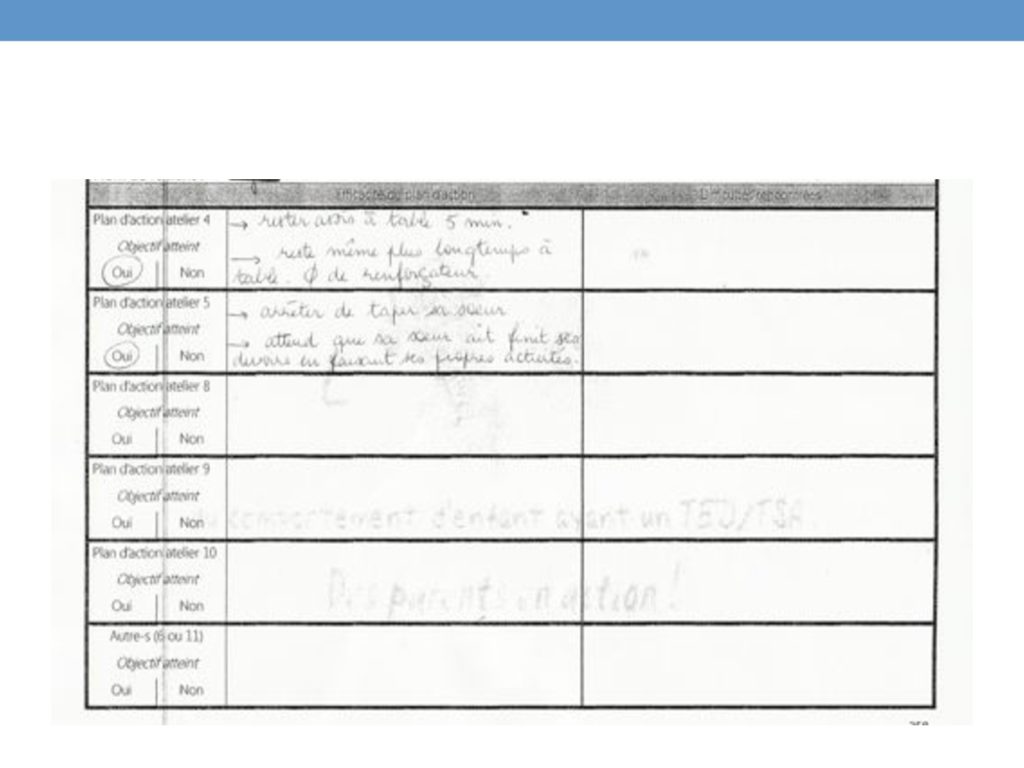 Efficacité du plan d'action Difficultés rencontrées
Plan d'action atelier 4
Objectif atteint
Oui | Non
→ rester assis à table 5 min.
→ reste même plus longtemps à
table. Ø de renforçateur.
Plan d'action atelier 5
Objectif atteint
Oui | Non
→ arrêter de taper sa soeur
→ attend que sa soeur ait finit ses
devoirs en faisant ses propres activités.
Plan d'action atelier 8
Objectif atteint
Oui | Non
Plan d'action atelier 9
Objectif atteint
Oui | Non
du comportement d'enfant ayant un TED/TSA.
Plan d'action atelier 10
Objectif atteint
Oui | Non
Des parents en action!
Autre-s (6 ou 11)
Objectif atteint
Oui | Non